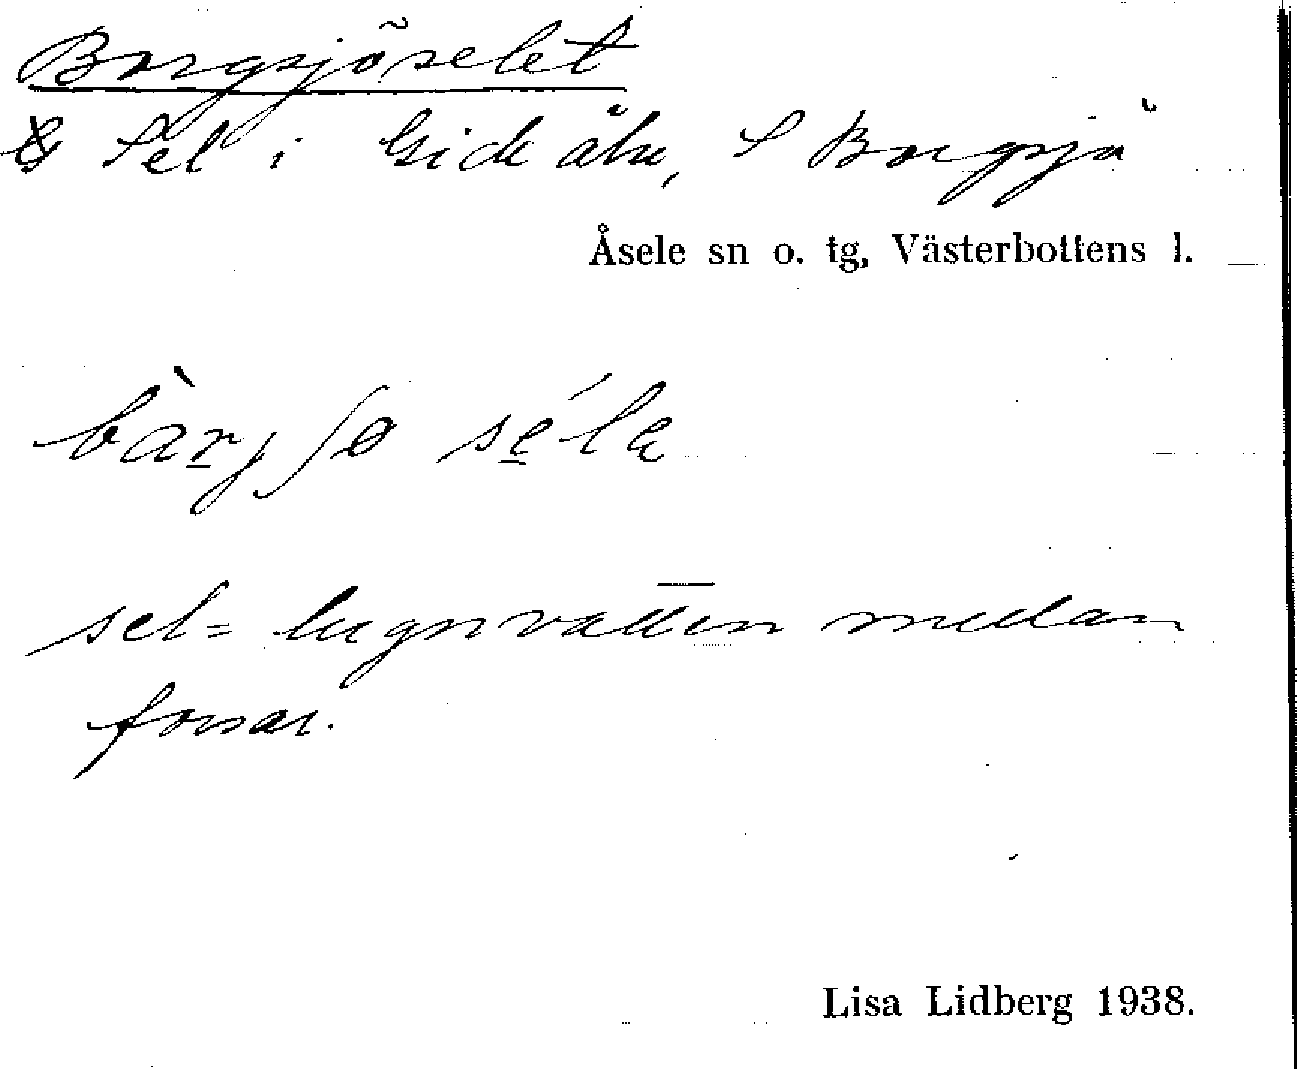 Borgsjöselet
Sel i Gide älv, S Borgsjö
Åsele sn o. tg, Västerbottens l.
bàrjʃø séla
sel = lugnvatten mellan
forsar.
Lisa Lidberg 1938.